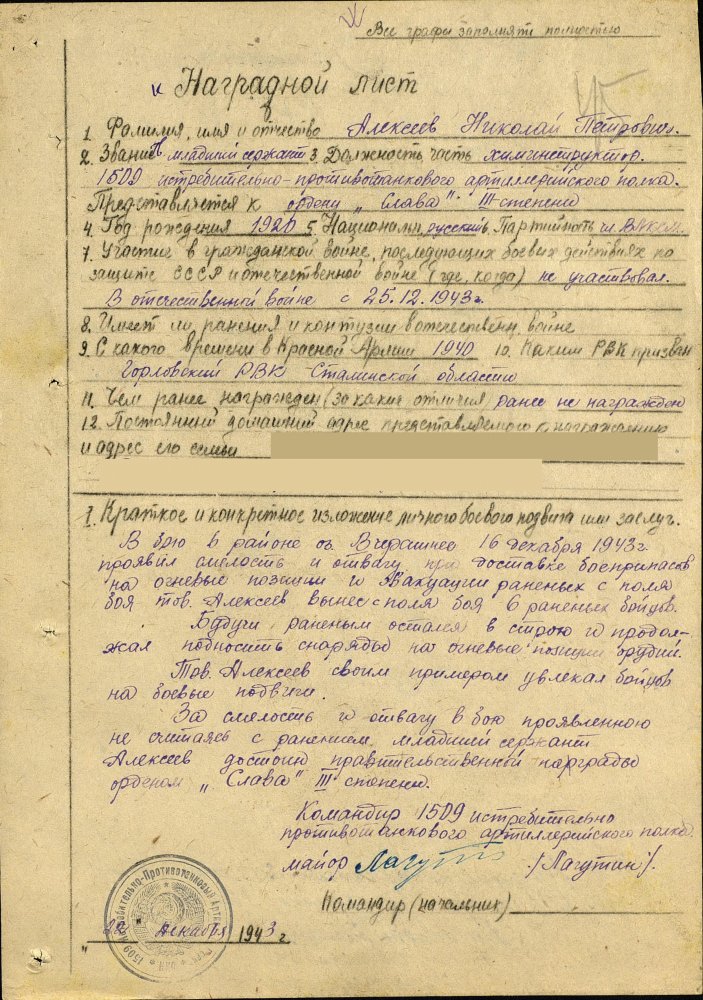 Все графы заполнять полностью
Наградной лист
1. Фамилия, имя и отчество Алексеев Николай Петрович.
2. Звание младший сержант 3. Должность часть химинструктор.
1509 истребительно-противотанкового артиллерийского полка.
Представляется к ордену „Слава" III степени
4. Год рождения 1920 5. Национальн. русский 6. Партийность чл. ВЛКСМ.
7. Участие в гражданской войне, последующих боевых действиях по
защите СССР и отечественной войне (где, когда) не участвовал.
В отечественной войне с 25.12.1943 г.
8. Имеет ли ранения и контузии в отечествен. войне
9. С какого времени в Красной Армии 1940 10. Каким РВК призван
Горловский РВК Сталинской области
11. Чем ранее награжден (за какие отличия ранее не награжден
12. Постоянный домашний адрес представляемого к награждению
и адрес его семьи
1. Краткое и конкретное изложение личного боевого подвига или заслуг.
В бою в районе 16 декабря 1943 г.
проявил смелость и отвагу при доставке боеприпасов
на огневые позиции и эвакуации раненых с поля
боя тов. Алексеев вынес с поля боя 6 раненых бойцов.
Будучи раненым остался в строю и продол-
жал подносить снаряды на огневые позиции орудий.
Тов. Алексеев своим примером увлекал бойцов
на боевые подвиги.
За смелость и отвагу в бою проявленною
не считаясь с ранением, младший сержант
Алексеев достоин правительственной награды
орденом „Слава" III степени.
Командир 1509 истребительно
противотанкового артиллерийского полка
майор Лагутин /Лагутин/.
Командир (начальник)
„22 декабря 1943 г.
1509 Истребительно-Противотанковый